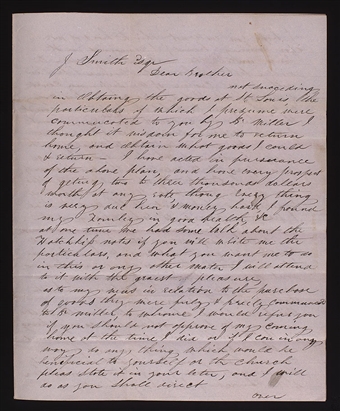 J Smith Esqr
Dear Brother
not succeding
in obtaing the goods at St Louis, the
particulars of which I presume were
communicated to you by Br Miller I
thought it wisdom for me to return
home, and obtain what goods I could
& return— I have acted in persuance
of the above plan, and have every prospect
of geting two to three thousands dollars
worth, at any rate though every thing
is very dull here & money hard, I found
my Family in good health, &c
at one time we had some talk about the
notes if you will write me the
particulars, and what you want me to do
in this or any other matter I will attend
to it with the greatest pleasure
as to my views in relation to the purchase
of goods they were fully & freely communicated
to Br Miller, to whome I would refer you
if you should not approve of my coming
home at the time I did or if I can in any
way do any thing which would be
beneficial to yourself or the Church
pleas state it in your letter, and I will
do as you shall direct
over